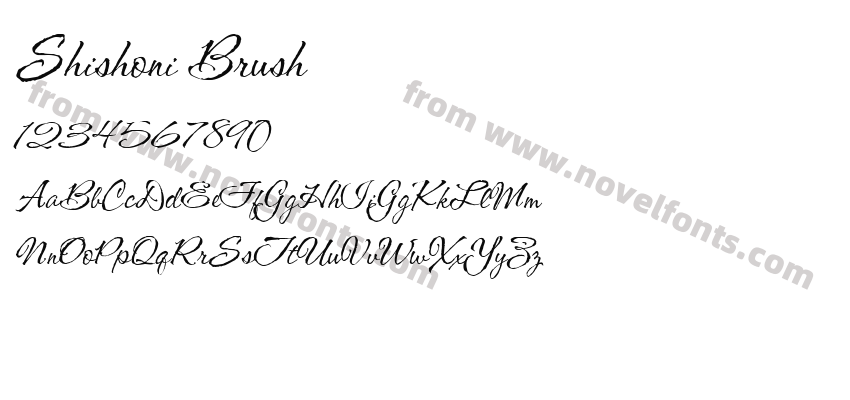 Shishoni Brush
1234567890
AaBbCcDdEeFfGgHhIiGgKkLlMm
NnOoPpQqRrSsTtUuVvWwXxYyZz
from www.novelfonts.com
from www.novelfonts.com